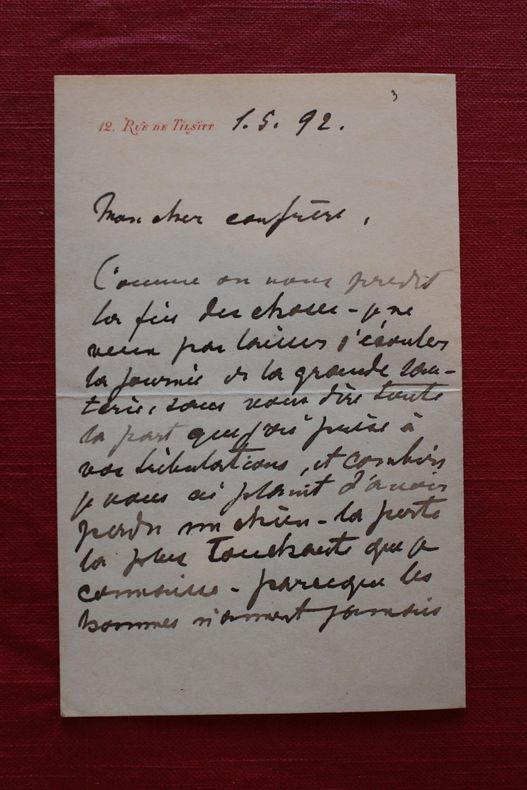 3
12, Rue de Tilsitt 1.5.92.
Mon cher confrère,
Comme on nous prédit
la fin des choses - je ne
veux pas laisser s'écouler
la journée de la grande
sans vous dire toute
la part que j'ai prise à
vos tribulations, et combien
je vous ai plaint d'avoir
perdu un chien - la perte
la plus touchante que je
connaisse - parceque les
hommes n'aiment jamais